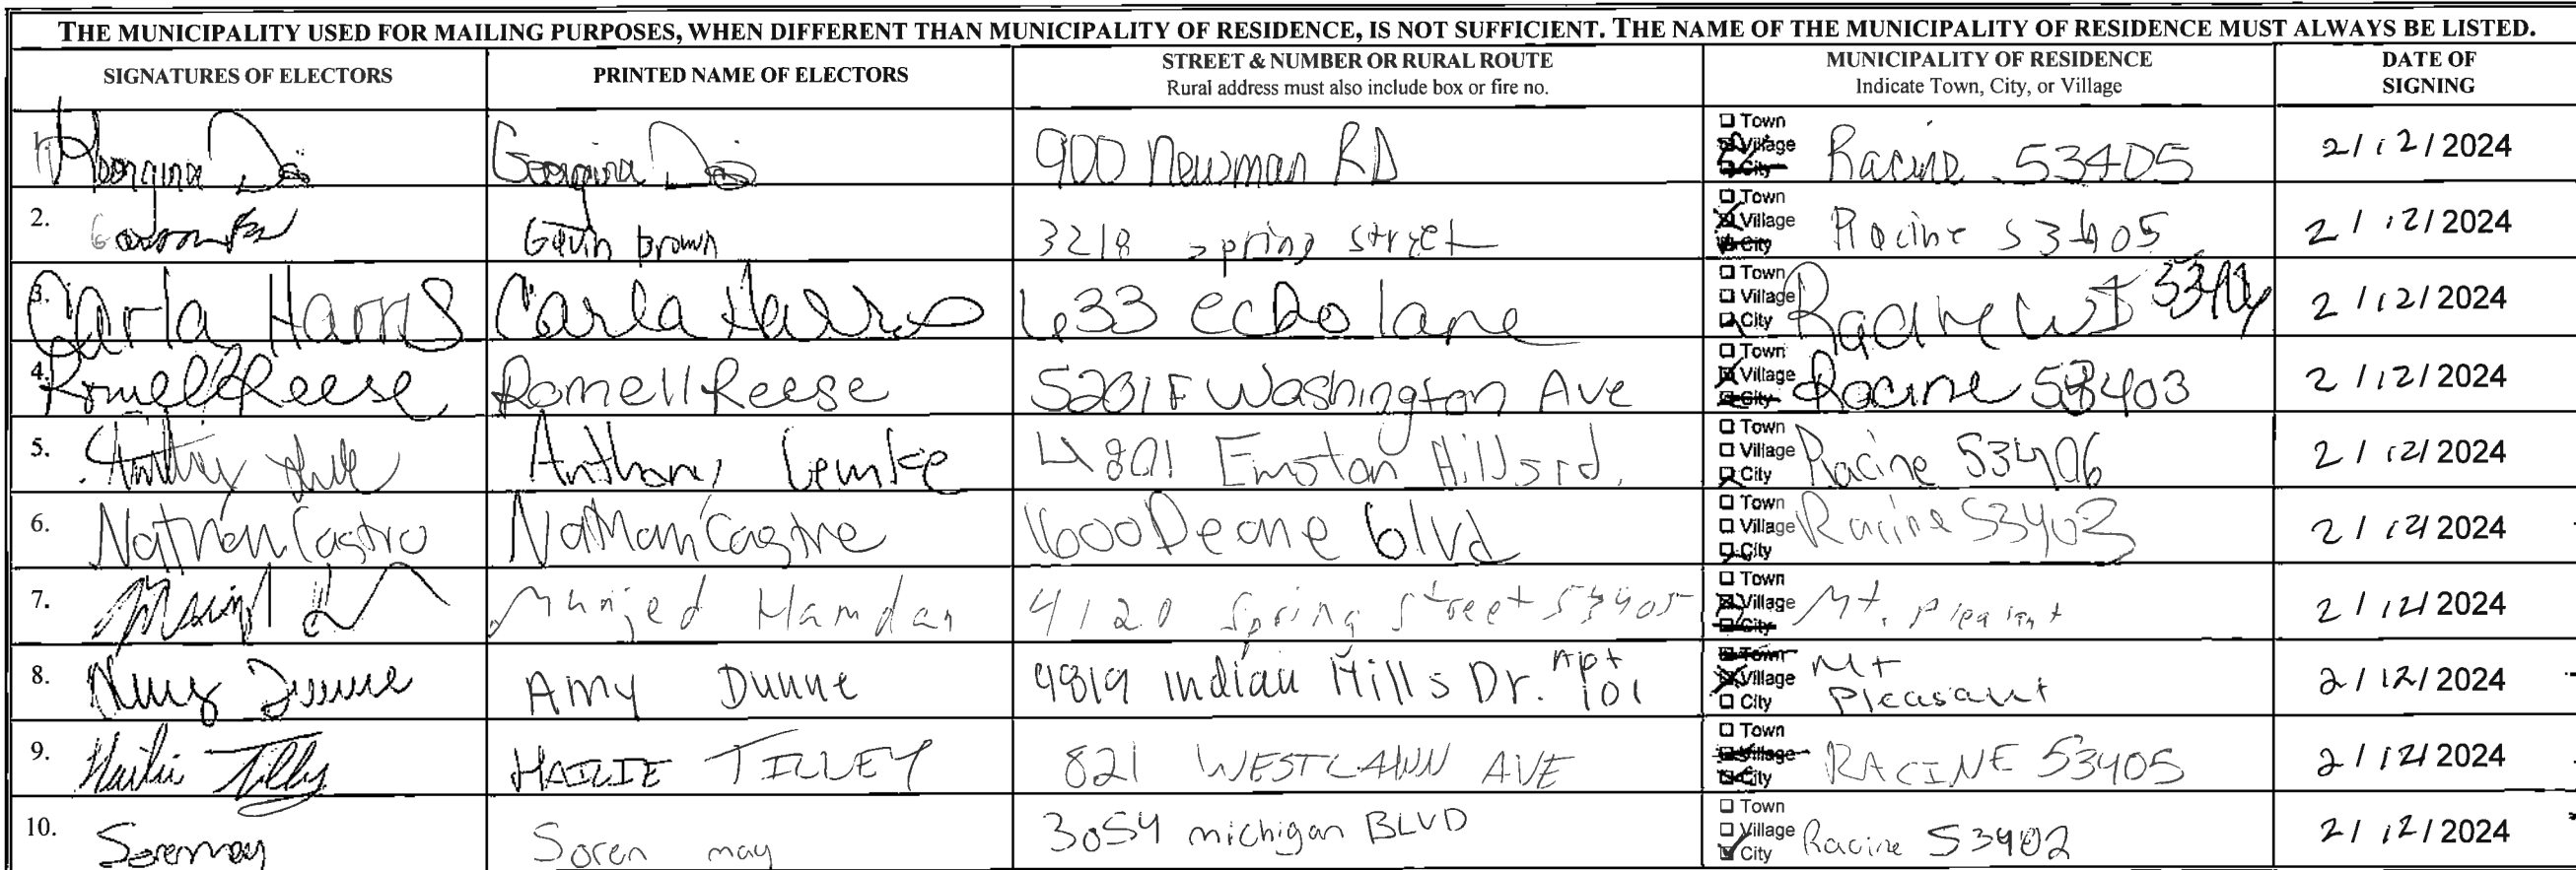 THE MUNICIPALITY USED FOR MAILING PURPOSES, WHEN DIFFERENT THAN MUNICIPALITY OF RESIDENCE, IS NOT SUFFICIENT. THE NAME OF THE MUNICIPALITY OF RESIDENCE MUST ALWAYS BE LISTED.
SIGNATURES OF ELECTORS PRINTED NAME OF ELECTORS STREET & NUMBER OR RURAL ROUTE MUNICIPALITY OF RESIDENCE DATE OF SIGNING
Rural address must also include box or fire no. Indicate Town, City, or Village
1. Georgina Georgina 900 Newman RD Town Village City Racine 53405 2/12/2024
2. Gavin brown 3218 spring street Town Village City Racine 53405 2/12/2024
3. Carla Harris Carla Harris 633 echo lane Town Village City Racine WI 2/12/2024
4. Romell Reese Romell Reese 5201 F Washington Ave Town Village City Racine 53403 2/12/2024
5. Anthony Town Village City Racine 53406 2/12/2024
6. Nathan Castro Nathan Castro 1600 Deane blvd Town Village City Racine 53403 2/12/2024
7. Munjed Hamdan 4120 Spring Street 53405 Town Village City Mt. Pleasant 2/12/2024
8. Amy Dunne Amy Dunne 4819 Indian Hills Dr. Apt 101 Town Village City Mt Pleasant 2/12/2024
9. Hailie Tilley HAILIE TILLEY 821 WESTLAWN AVE Town Village City RACINE 53405 2/12/2024
10. Soren may Soren may 3054 michigan BLVD Town Village City Racine 53402 2/12/2024